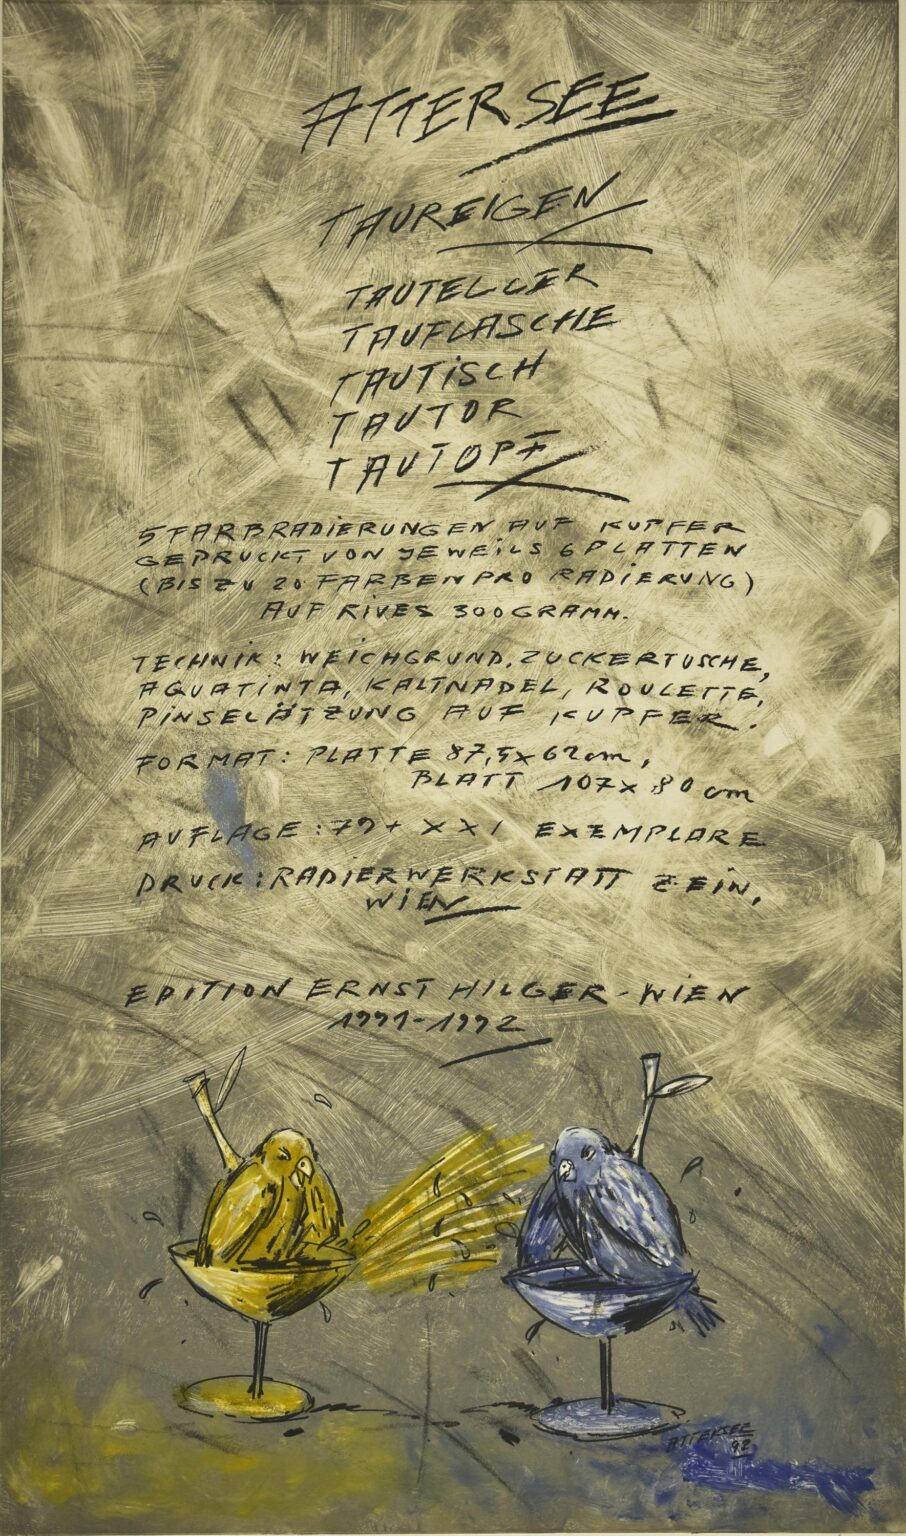 ATTERSEE
TAUREIGEN
TAUTELLER
TAUFLASCHE
TAUTiSCH
TAUTOR
TAUTOPF
5 FARBRADIERUNGEN AUF KUPFER
GEDRUCKT VON JEWEiLS 6 PLATTEN
(BIS ZU 20 FARBEN PRO RADIERUNG)
AUF RIVES 300 GRAMM.
TECHNIK: WEICHGRUND, ZUCKERTUSCHE,
AQUATINTA, KALTNADEL, ROULETTE,
PINSELÄTZUNG AUF KUPFER.
FORMAT: PLATTE 87,5 x 62 cm,
BLATT 107 x 80 cm
AUFLAGE: 79 + XXI EXEMPLARE
DRUCK: RADIERWERKSTATT ZEIN,
WiEN
EDITION ERNST HILGER - WIEN
1991-1992
ATTERSEE
92